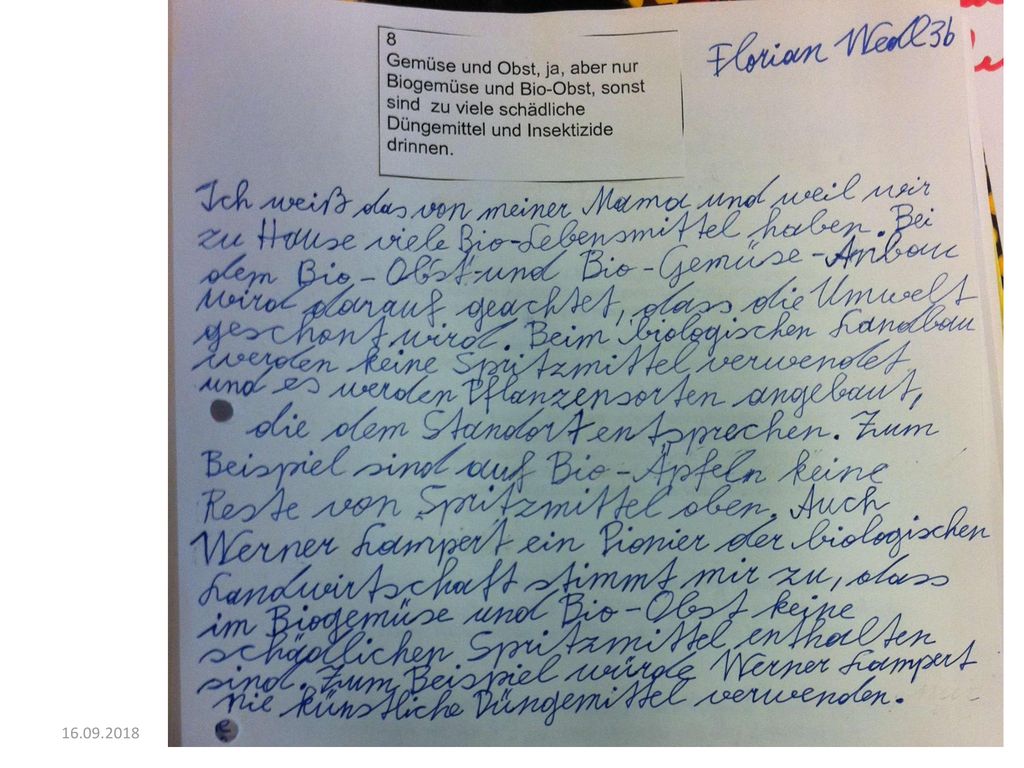 8
Gemüse und Obst, ja, aber nur
Biogemüse und Bio-Obst, sonst
sind zu viele schädliche
Düngemittel und Insektizide
drinnen.
Florian Wedl 3b
Ich weiß das von meiner Mama und weil wir
zu Hause viele Bio-Lebensmittel haben. Bei
dem Bio-Obst- und Bio-Gemüse-Anbau
wird darauf geachtet, dass die Umwelt
geschont wird. Beim biologischen Landbau
werden keine Spritzmittel verwendet
und es werden Pflanzensorten angebaut,
die dem Standort entsprechen. Zum
Beispiel sind auf Bio-Äpfeln keine
Reste von Spritzmittel oben. Auch
Werner Lampert ein Pionier der biologischen
Landwirtschaft stimmt mir zu, dass
im Biogemüse und Bio-Obst keine
schädlichen Spritzmittel enthalten
sind. Zum Beispiel würde Werner Lampert
nie künstliche Düngemittel verwenden.
16.09.2018